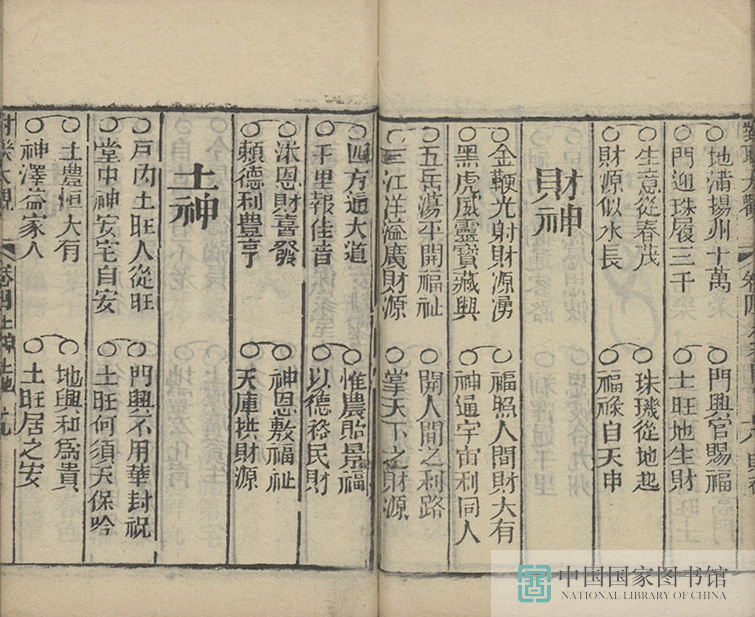 地滿揚州十萬
門迎珠履三千
門興官賜福
土旺地生財
生意從春茂
財源似水長
珠璣從地起
福祿自天申
財神
金鞭光射財源湧
黑虎威靈寶藏興
福照人間財大有
神通宇宙利同人
五岳蕩平開福祉
三江洋溢廣財源
開人間之利路
掌天下之財源
四方通大道
千里報佳音
惟農貽景福
以德裕民財
沐恩財喜發
賴德利豊亨
神恩敷福祉
天庫拱財源
土神
戶內土旺人從旺
堂中神安宅自安
門興不用華封祝
土旺何須天保吟
土豊恒大有
神澤益家人
地興和為貴
土旺居之安
中国国家图书馆
NATIONAL LIBRARY OF CHINA